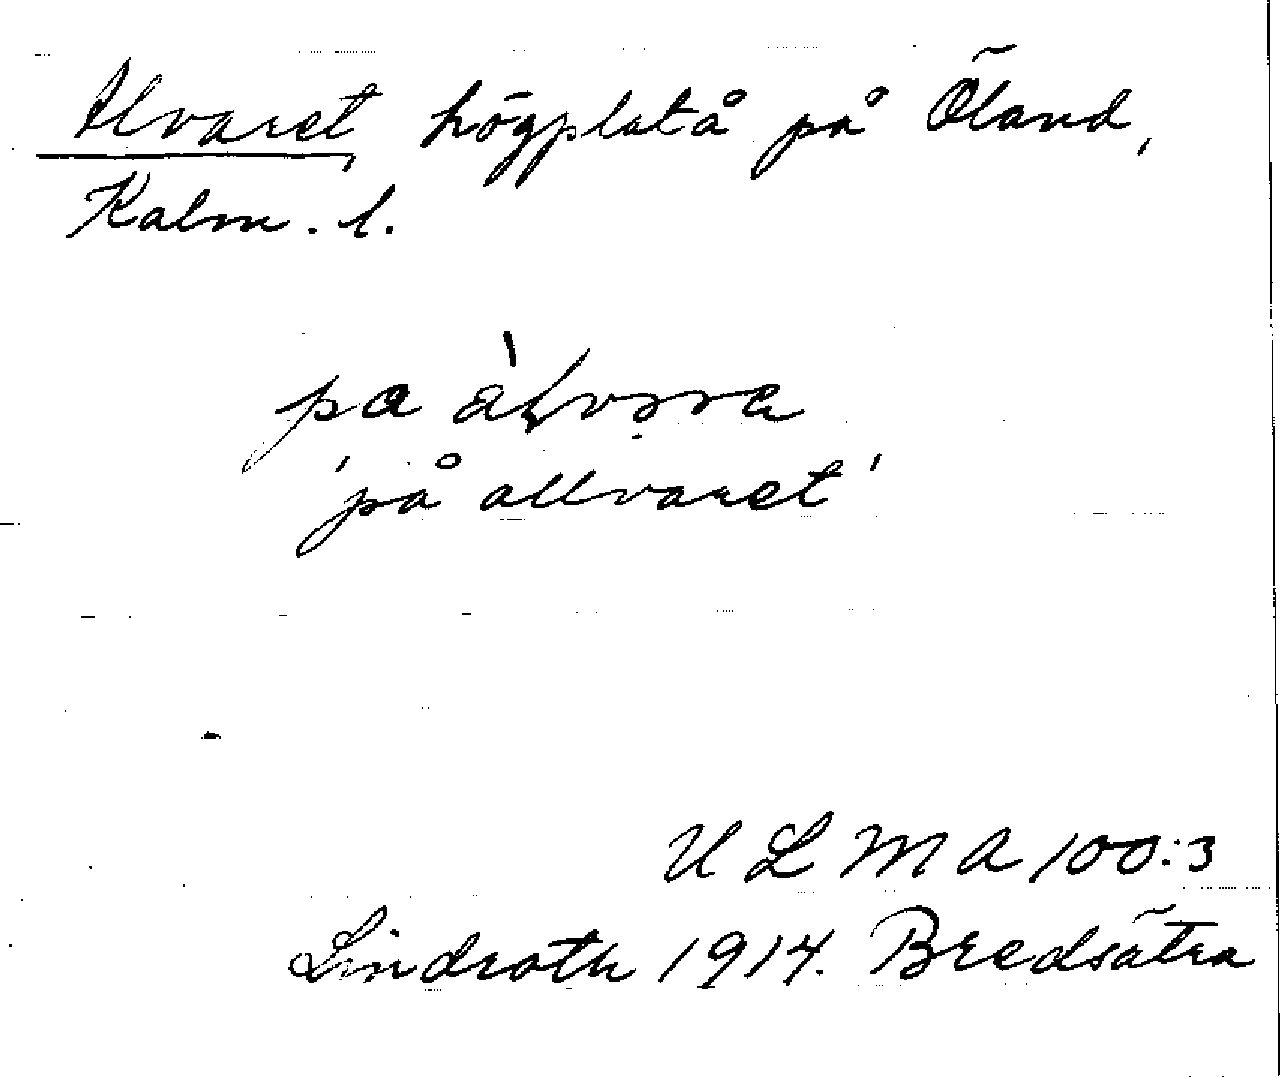 Alvaret, högplatå på Öland,
Kalm. l.
pa
'på allvaret'
ULMA 100:3
Lindroth 1914. Bredsätra